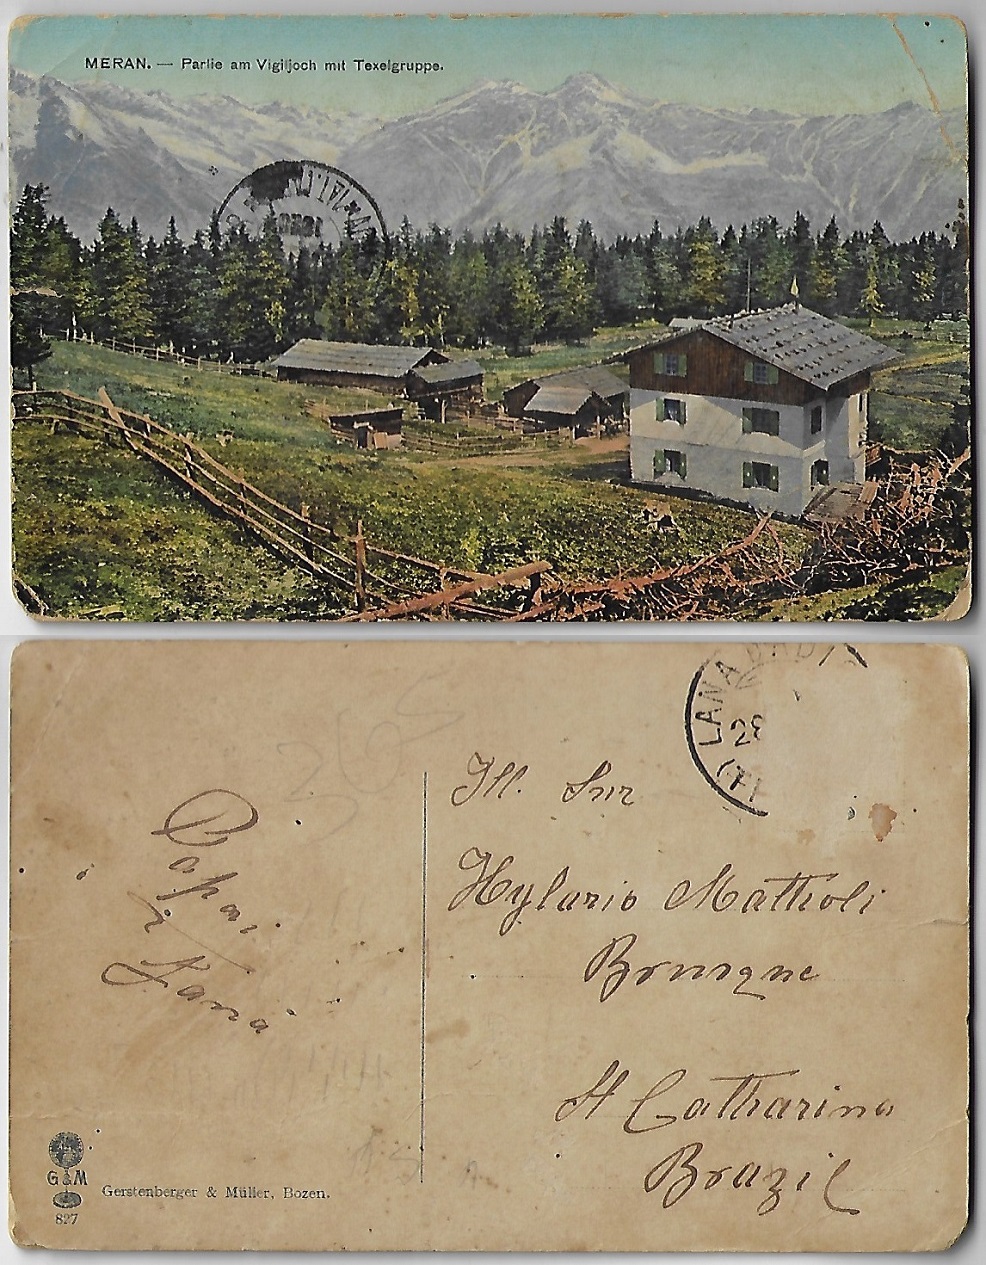 MERAN. — Partie am Vigiljoch mit Texelgruppe.
LANA
28
Ill. Snr
Hylario Mattioli
Brusque
St Catharina
Brazil
G & M
Gerstenberger & Müller, Bozen.
827